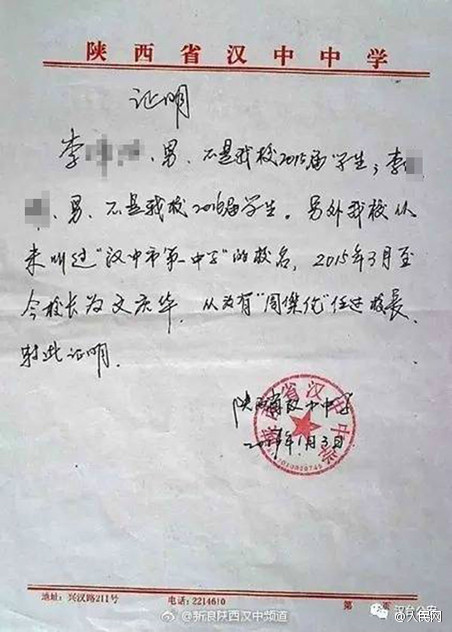 陕西省汉中中学
证明
李 、男、不是我校2015届学生；李
、男、不是我校2016届学生。另外我校从
未叫过“汉中市第一中学”的校名，2015年3月至
今校长为文庆华，从未有“周 ”任过校长
特此证明。
陕西省汉中中学
年1月3日
地址：兴汉路211号 电话：2214610 第
@新浪陕西汉中频道
汉台公安
@人民网